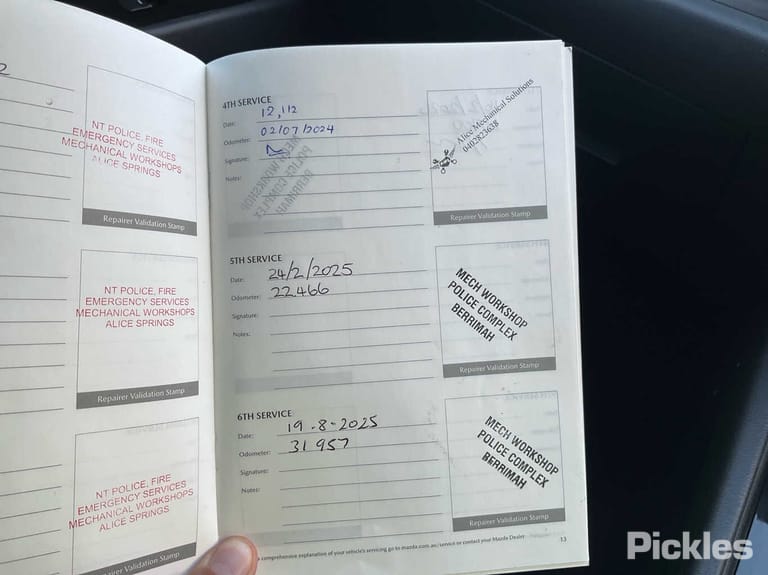 2
NT POLICE, FIRE
EMERGENCY SERVICES
MECHANICAL WORKSHOPS
ALICE SPRINGS
Repairer Validation Stamp
NT POLICE, FIRE
EMERGENCY SERVICES
MECHANICAL WORKSHOPS
ALICE SPRINGS
Repairer Validation Stamp
NT POLICE, FIRE
EMERGENCY SERVICES
MECHANICAL WORKSHOPS
ALICE SPRINGS
Repairer Validation Stamp
4TH SERVICE
Date: 12,112
Odometer: 02/07/2024
Signature:
Notes:
Alice Mechanical Solutions
0402823638
Repairer Validation Stamp
5TH SERVICE
Date: 24/2/2025
Odometer: 22466
Signature:
Notes:
MECH WORKSHOP
POLICE COMPLEX
BERRIMAH
Repairer Validation Stamp
6TH SERVICE
Date: 19-8-2025
Odometer: 31957
Signature:
Notes:
MECH WORKSHOP
POLICE COMPLEX
BERRIMAH
Repairer Validation Stamp
comprehensive explanation of your vehicle's servicing go to mazda.com.au/service or contact your Mazda Dealer
13
Pickles